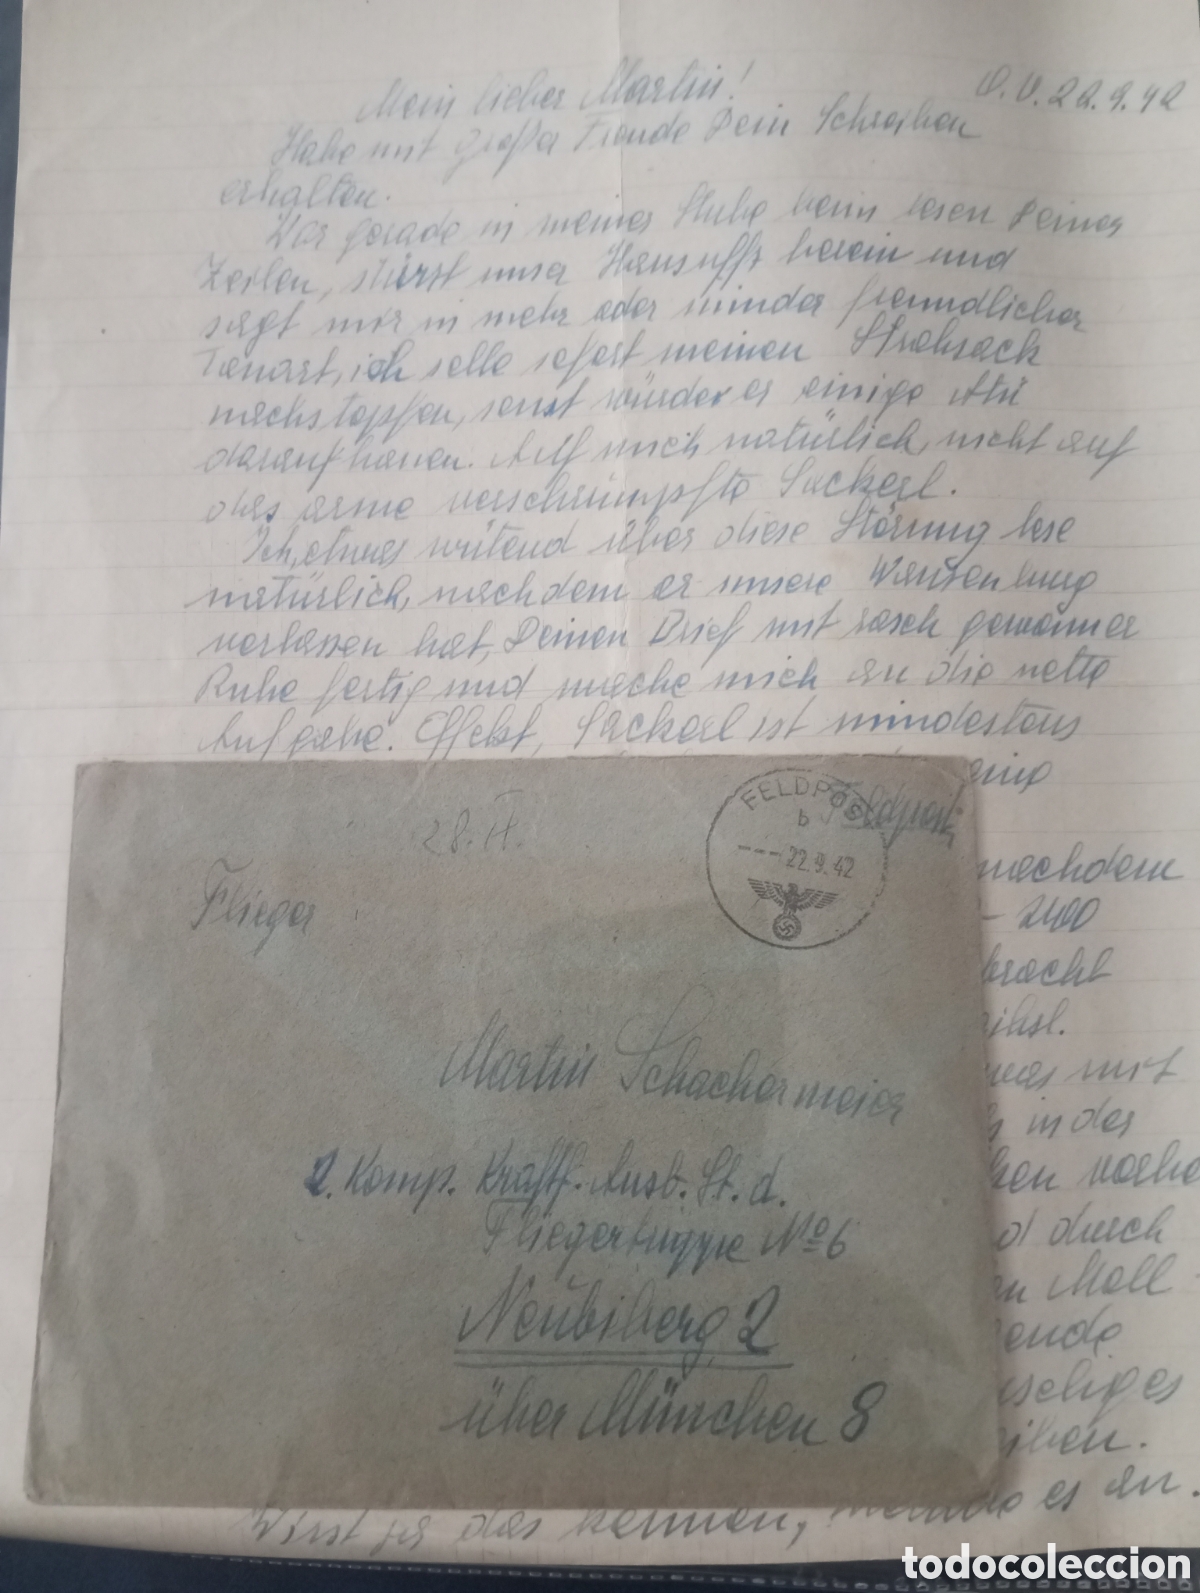 O.U. 22.9.42
Mein lieber Martin!
Habe mit großer Freude Dein Schreiben
erhalten.
War gerade in meiner Stube beim lesen Deiner
Zeilen, stürst unser Hausuffz herein und
sagt mir in mehr oder minder freundlicher
Tonart, ich solle sofort meinen Strohsack
nachstopfen, sonst würde er einige
daraufhauen. Auf mich natürlich, nicht auf
das arme verschrumpfte Sackerl.
Ich, etwas wütend über diese Störung lese
natürlich, nachdem er unsere Wanzenburg
verlassen hat, Deinen Brief mit rasch gewonner
Ruhe fertig und mache mich an die nette
Aufgabe. Effekt, Sackerl ist mindestens
nachdem
- 2400
bracht
was mit
in der
durch
Moll
es
Wirst ja das kennen, es an.
FELDPOST
b
--- 22.9.42
Feldpost
28.IX.
Flieger
Martin Schachermeier
2. Komp. Kraftf. Ausb. St. d.
Fliegertruppe No 6
Neubiberg 2
über München 8
todocoleccion